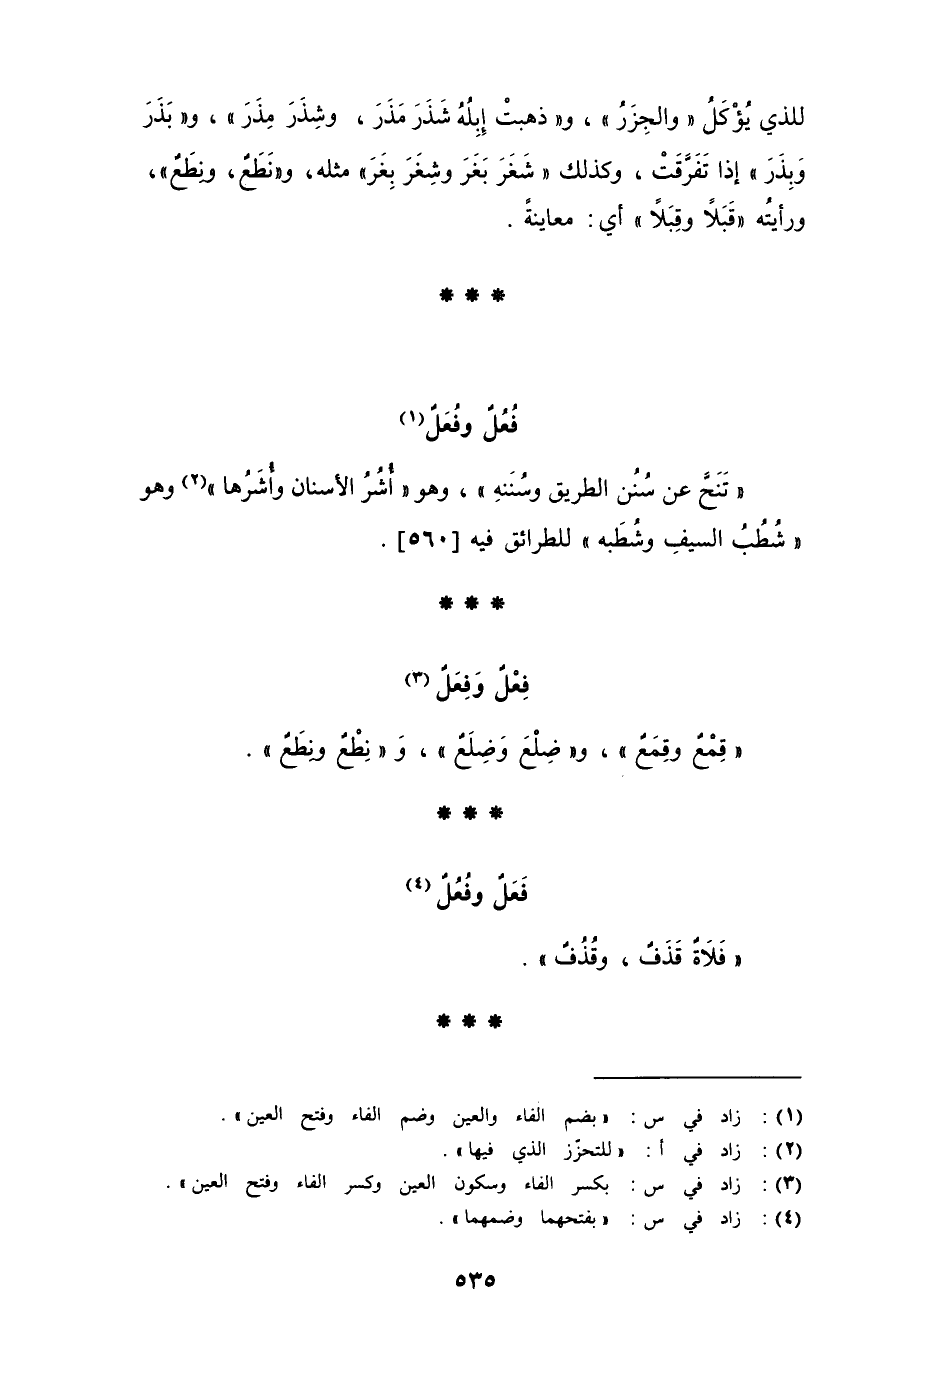 للذي يُؤْكَلُ « والجِزَرُ » ، و« ذهبتْ إِبِلُهُ شَذَرَ مَذَرَ ، وشِذَرَ مِذَرَ » ، و« بَذَرَ
وَبِذَرَ » إذا تَفَرَّقَتْ ، وكذلك « شَغَرَ بَغَرَ وشِغَرَ بِغَرَ» مثله، و«نَطَعٌ، ونِطَعٌ»،
ورأيتُه «قَبَلًا وقِبَلًا » أي: معاينةً .
* * *
فُعُلٌ وفُعَلٌ(١)
« تَنَحَّ عن سُنُن الطريق وسُنَنهِ » ، وهو « أُشُرُ الأسنان وأُشَرُها »(٢) وهو
« شُطُبُ السيفِ وشُطَبه » للطرائق فيه [٥٦٠] .
* * *
فِعْلٌ وَفِعَلٌ (٣)
« قِمْعٌ وقِمَعٌ » ، و« ضِلْعَ وَضِلَعٌ » ، وَ « نِطْعٌ ونِطَعٌ » .
* * *
فَعَلٌ وفُعُلٌ (٤)
« فَلَاةٌ قَذَفٌ ، وقُذُفٌ » .
* * *
(١) : زاد في س : « بضم الفاء والعين وضم الفاء وفتح العين» .
(٢) : زاد في أ : « للتحزّز الذي فيها» .
(٣) : زاد في س : بكسر الفاء وسكون العين وكسر الفاء وفتح العين» .
(٤) : زاد في س : « بفتحهما وضمهما» .
٥٣٥